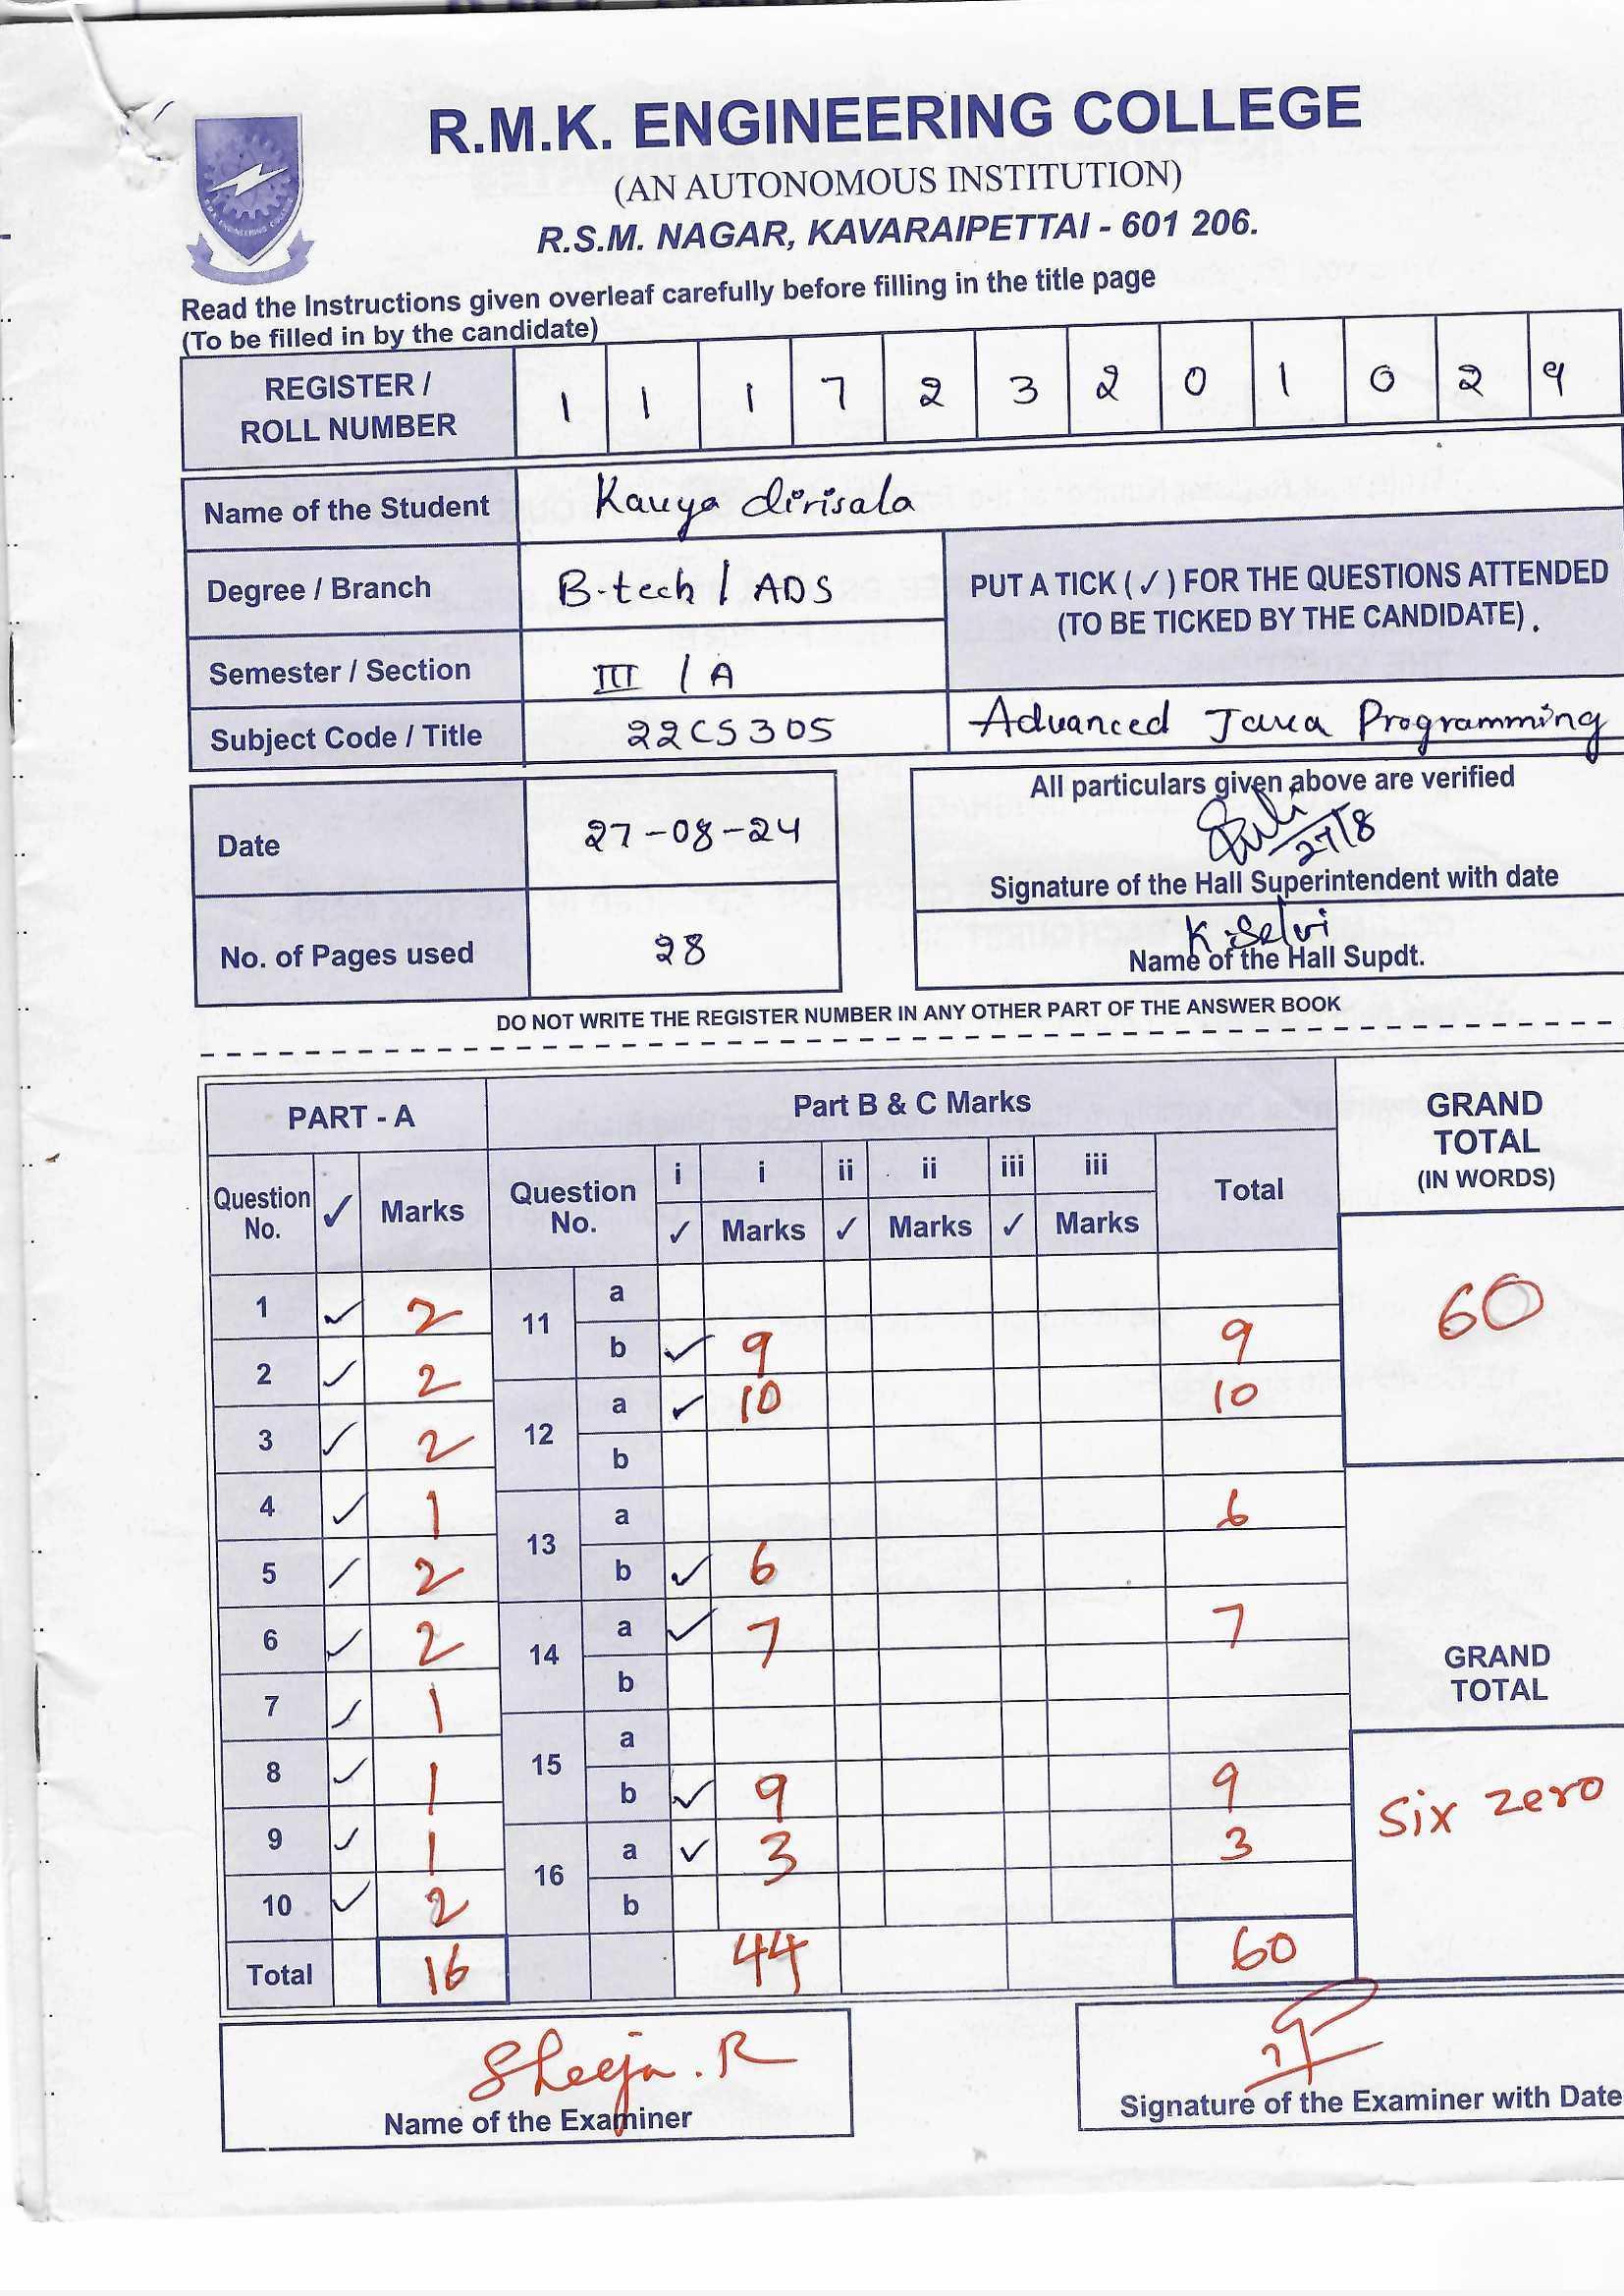 R.M.K. ENGINEERING COLLEGE
(AN AUTONOMOUS INSTITUTION)
R.S.M. NAGAR, KAVARAIPETTAI - 601 206.
Read the Instructions given overleaf carefully before filling in the title page
(To be filled in by the candidate)
REGISTER / ROLL NUMBER 1 1 1 7 2 3 2 0 1 0 2 9
Name of the Student Kavya dirisala
Degree / Branch B-tech / ADS
PUT A TICK (✓) FOR THE QUESTIONS ATTENDED
(TO BE TICKED BY THE CANDIDATE).
Semester / Section III / A
Subject Code / Title 22CS305 Advanced Java Programming
Date 27-08-24
All particulars given above are verified
27/8
Signature of the Hall Superintendent with date
No. of Pages used 28
K. Selvi
Name of the Hall Supdt.
DO NOT WRITE THE REGISTER NUMBER IN ANY OTHER PART OF THE ANSWER BOOK
PART - A
Question No. ✓ Marks
1 ✓ 2
2 ✓ 2
3 ✓ 2
4 ✓ 1
5 ✓ 2
6 ✓ 2
7 ✓ 1
8 ✓ 1
9 ✓ 1
10 ✓ 2
Total 16
Part B & C Marks
Question No. i i ii ii iii iii Total
✓ Marks ✓ Marks ✓ Marks
11 a
b ✓ 9 9
12 a ✓ 10 10
b
13 a 6
b ✓ 6
14 a ✓ 7 7
b
15 a
b ✓ 9 9
16 a ✓ 3 3
b
44 60
GRAND
TOTAL
(IN WORDS)
60
GRAND
TOTAL
Six zero
Sheeja. R
Name of the Examiner
Signature of the Examiner with Date